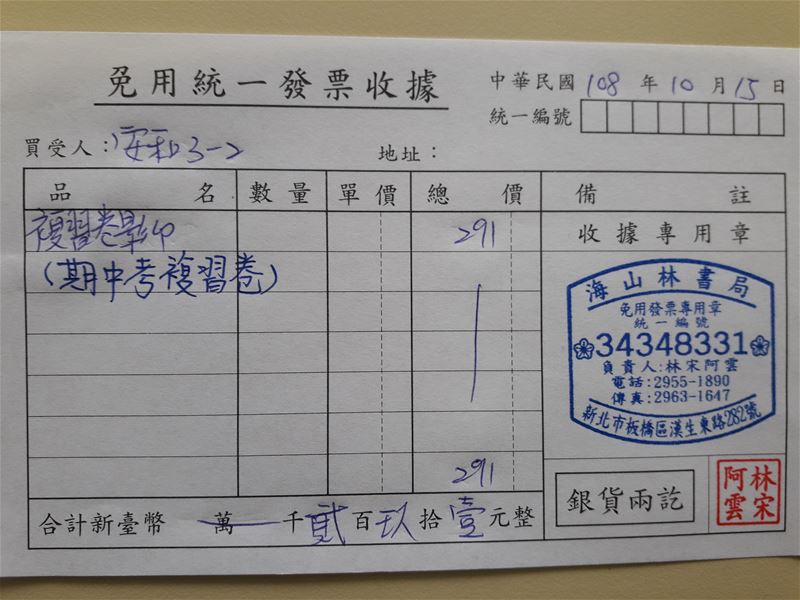 免用統一發票收據
中華民國 108 年 10 月 15 日
統一編號
買受人：安和3-2
地址：
品名 數量 單價 總價 備註
複習卷影印 291 收據專用章
(期中考複習卷)
海山林書局
免用發票專用章
統一編號
34348331
負責人:林宋阿雲
電話:2955-1890
傳真:2963-1647
新北市板橋區漢生東路282號
291
合計新臺幣 萬 千 貳 百 玖 拾 壹 元整
銀貨兩訖
林宋
阿雲